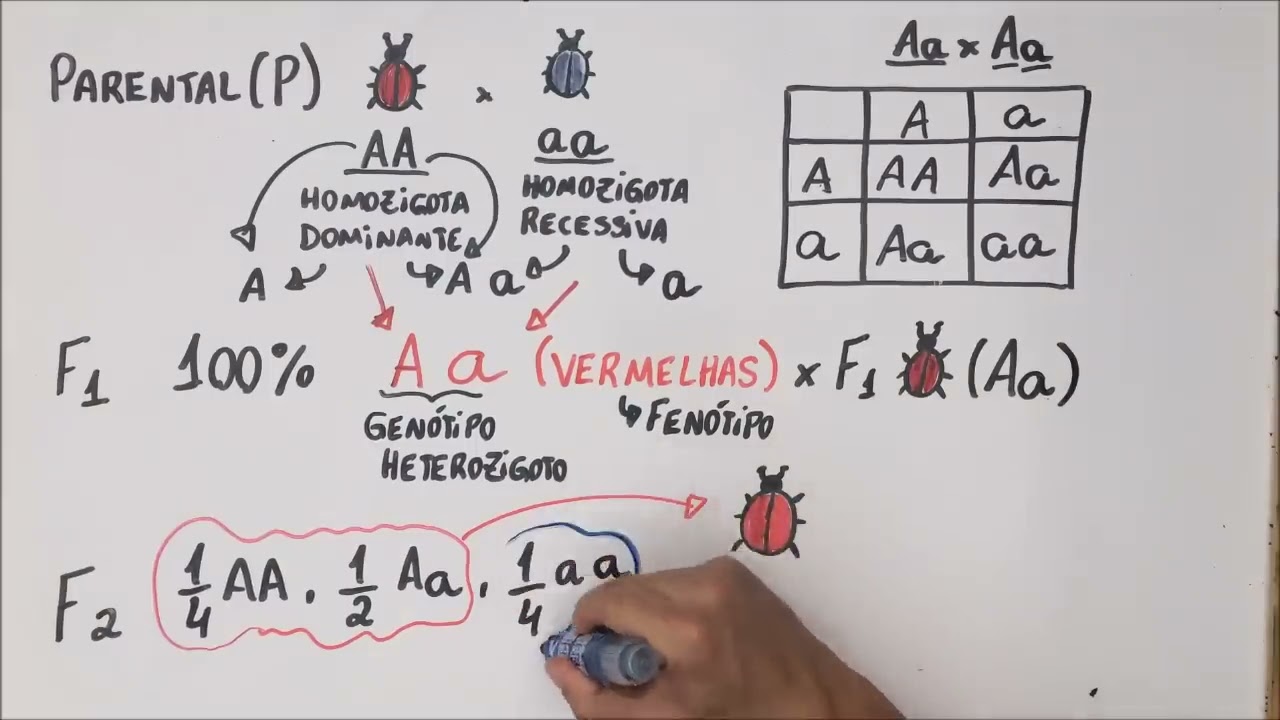 PARENTAL (P) x
AA
HOMOZIGOTA
DOMINANTE
A A
aa
HOMOZIGOTA
RECESSIVA
a a
Aa x Aa
A a
A AA Aa
a Aa aa
F1 100% Aa (VERMELHAS) x F1 (Aa)
GENÓTIPO
HETEROZIGOTO
FENÓTIPO
F2 1/4 AA . 1/2 Aa . 1/4 aa